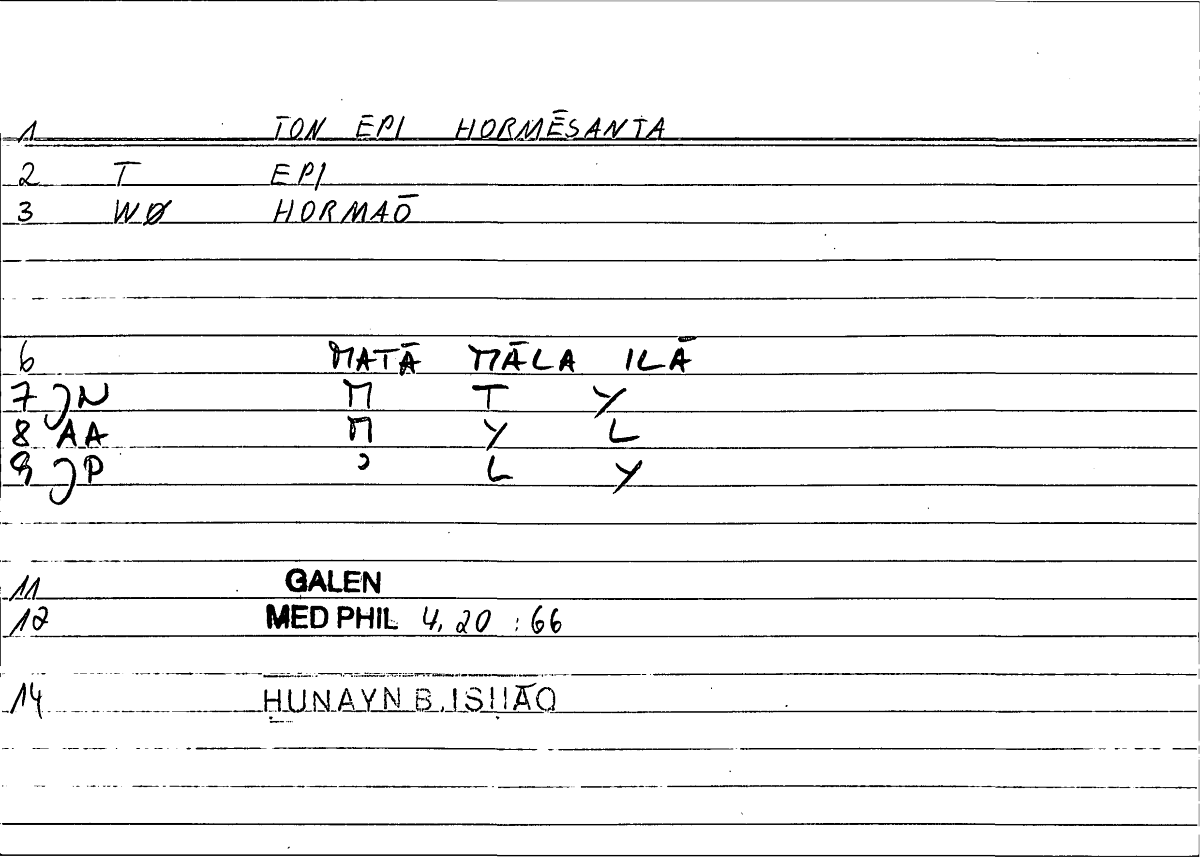 1 TON EPI HORMĒSANTA
2 T EPI
3 WØ HORMAŌ
6 MATĀ MĀLA ILĀ
7 JN M T Y
8 AA M Y L
9 JP ʾ L Y
11 GALEN
12 MED PHIL 4, 20 : 66
14 ḤUNAYN B. ISḤĀQ